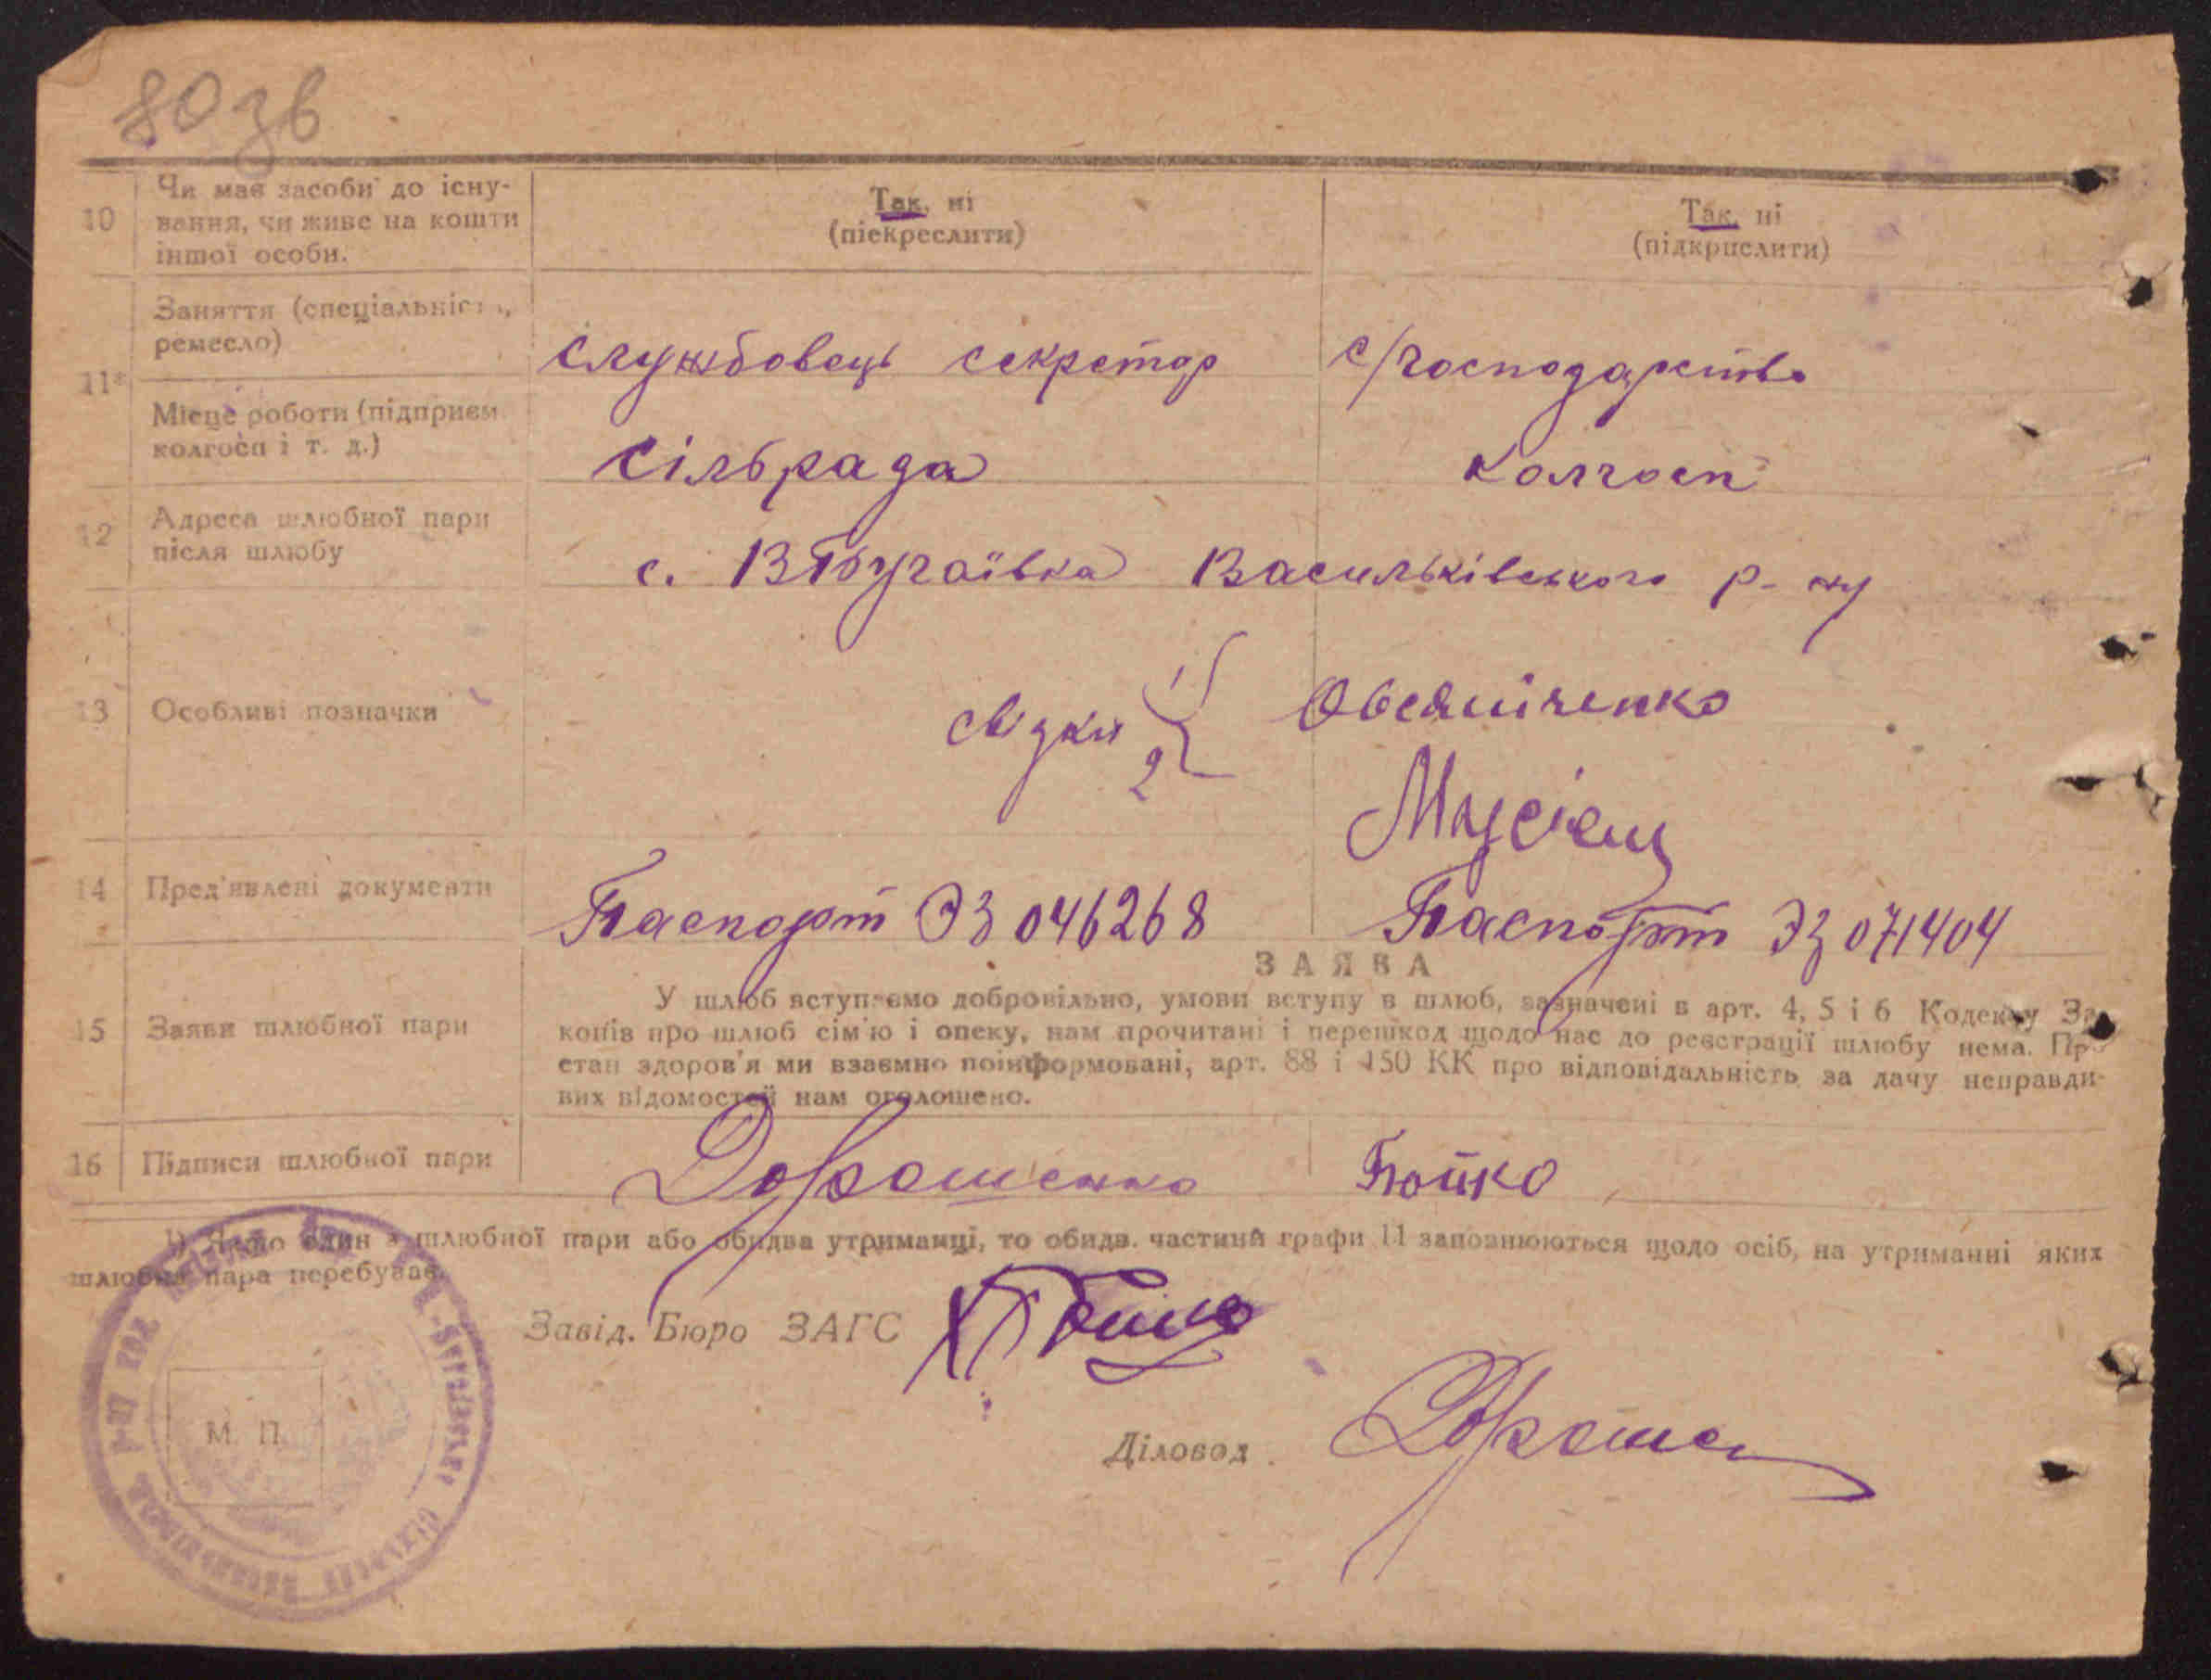 80 зв
10
Чи має засоби до існу-
вання, чи живе на кошти
іншої особи.
Так, ні
(піекреслити)
Так, ні
(підкрислити)
11*
Заняття (спеціальність,
ремесло)
службовець секретар
с/господарство
Місце роботи (підприєм.
колгосп і т. д.)
сільрада
колгосп
12
Адреса шлюбної пари
після шлюбу
с. ВБугаївка Васильківського р-ну
13
Особливі позначки
свідки
1
Овсяніченко
2
Мусієц
14
Пред'явлені документи
Паспорт ЭЗ 046268
Паспорт ЭЗ 071404
15
Заяви шлюбної пари
ЗАЯВА
У шлюб вступаємо добровільно, умови вступу в шлюб, зазначені в арт. 4, 5 і 6 Кодексу За-
конів про шлюб сім'ю і опеку, нам прочитані і перешкод щодо нас до реєстрації шлюбу нема. Про
стан здоров'я ми взаємно поінформовані, арт. 88 і 150 КК про відповідальність за дачу неправди-
вих відомостей нам оголошено.
16
Підписи шлюбної пари
Дорошенко
Бойко
1) Якщо один з шлюбної пари або обидва утриманці, то обидв. частини графи 11 заповнюються щодо осіб, на утриманні яких
шлюбна пара перебуває.
Завід. Бюро ЗАГС
М. П.
Діловод
Дороше